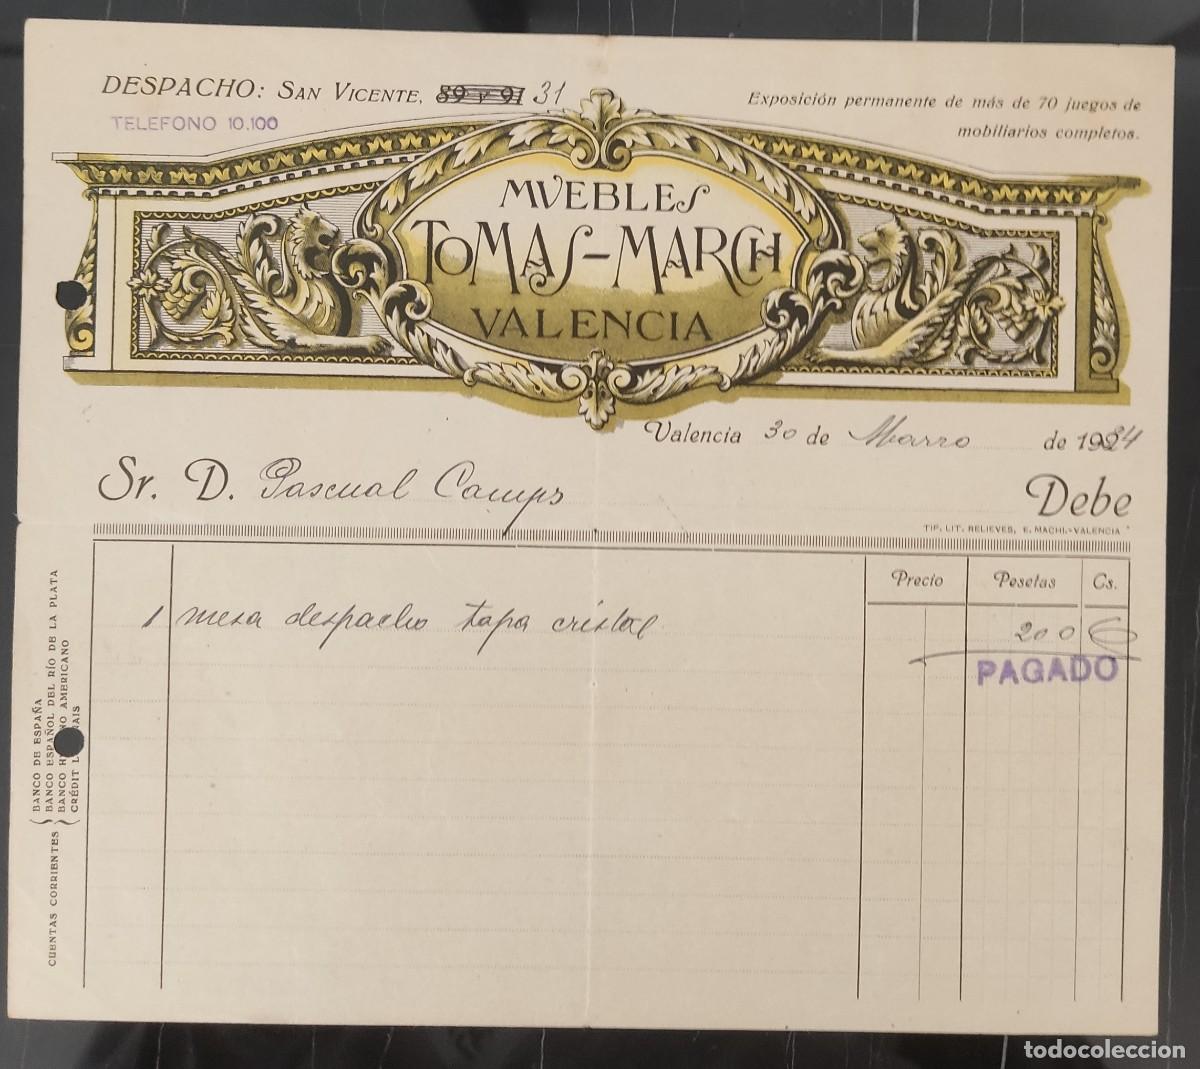 DESPACHO: SAN VICENTE, 89 y 91 31
TELEFONO 10.100
Exposición permanente de más de 70 juegos de
mobiliarios completos.
MVEBLES
TOMAS-MARCH
VALENCIA
Valencia 30 de Marzo de 1934
Sr. D. Pascual Camps Debe
TIP. LIT. RELIEVES, E. MACHI.-VALENCIA
Precio Pesetas Cs.
1 mesa despacho tapa cristal 200
PAGADO
CUENTAS CORRIENTES
BANCO DE ESPAÑA
BANCO ESPAÑOL DEL RÍO DE LA PLATA
BANCO H NO AMERICANO
CRÉDIT L NAIS
todocoleccion